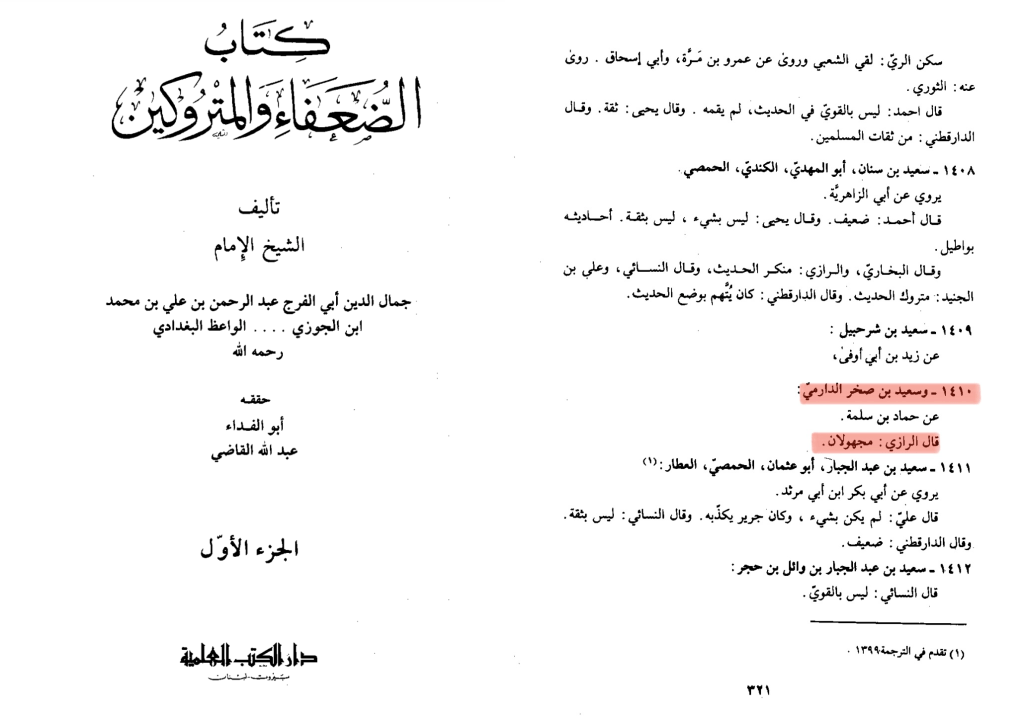 كِتَابُ
الضُّعَفَاءِ وَالمَتْرُوكِينَ
تأليف
الشيخ الإمام
جمال الدين أبي الفرج عبد الرحمن بن علي بن محمد
ابن الجوزي .... الواعظ البغدادي
رحمه الله
حققه
أبو الفداء
عبد الله القاضي
الجزء الأوّل
دار الكتب العلمية
بيروت - لبنان
سكن الريّ: لقي الشعبي وروىٰ عن عمرو بن مَرَّة، وأبي إسحاق . روىٰ
عنه: الثوري.
قال احمد: ليس بالقويّ في الحديث، لم يقمه . وقال يحيى: ثقة. وقال
الدارقطني: من ثقات المسلمين.
١٤٠٨ ـ سعيد بن سنان، أبو المهديّ، الكنديّ، الحمصي.
يروي عن أبي الزاهريَّة.
قال أحمد: ضعيف. وقال يحيى: ليس بشيء ، ليس بثقة. أحاديثه
بواطيل.
وقال البخاريّ، والرازي: منكر الحديث، وقال النسائي، وعلي بن
الجنيد: متروك الحديث. وقال الدارقطني: كان يُتَّهم بوضع الحديث.
١٤٠٩ ـ سعيد بن شرحبيل :
عن زيد بن أبي أوفىٰ،
١٤١٠ ـ وسعيد بن صخر الدارميّ:
عن حماد بن سلمة.
قال الرازي: مجهولان.
١٤١١ ـ سعيد بن عبد الجبار، أبو عثمان، الحمصيّ، العطار:(١)
يروي عن أبي بكر ابن أبي مرثد.
قال عليّ: لم يكن بشيء ، وكان جرير يكذّبه. وقال النسائي: ليس بثقة.
وقال الدارقطني: ضعيف.
١٤١٢ ـ سعيد بن عبد الجبار بن وائل بن حجر:
قال النسائي: ليس بالقويّ.
(١) تقدم في الترجمة ١٣٩٩ .
٣٢١